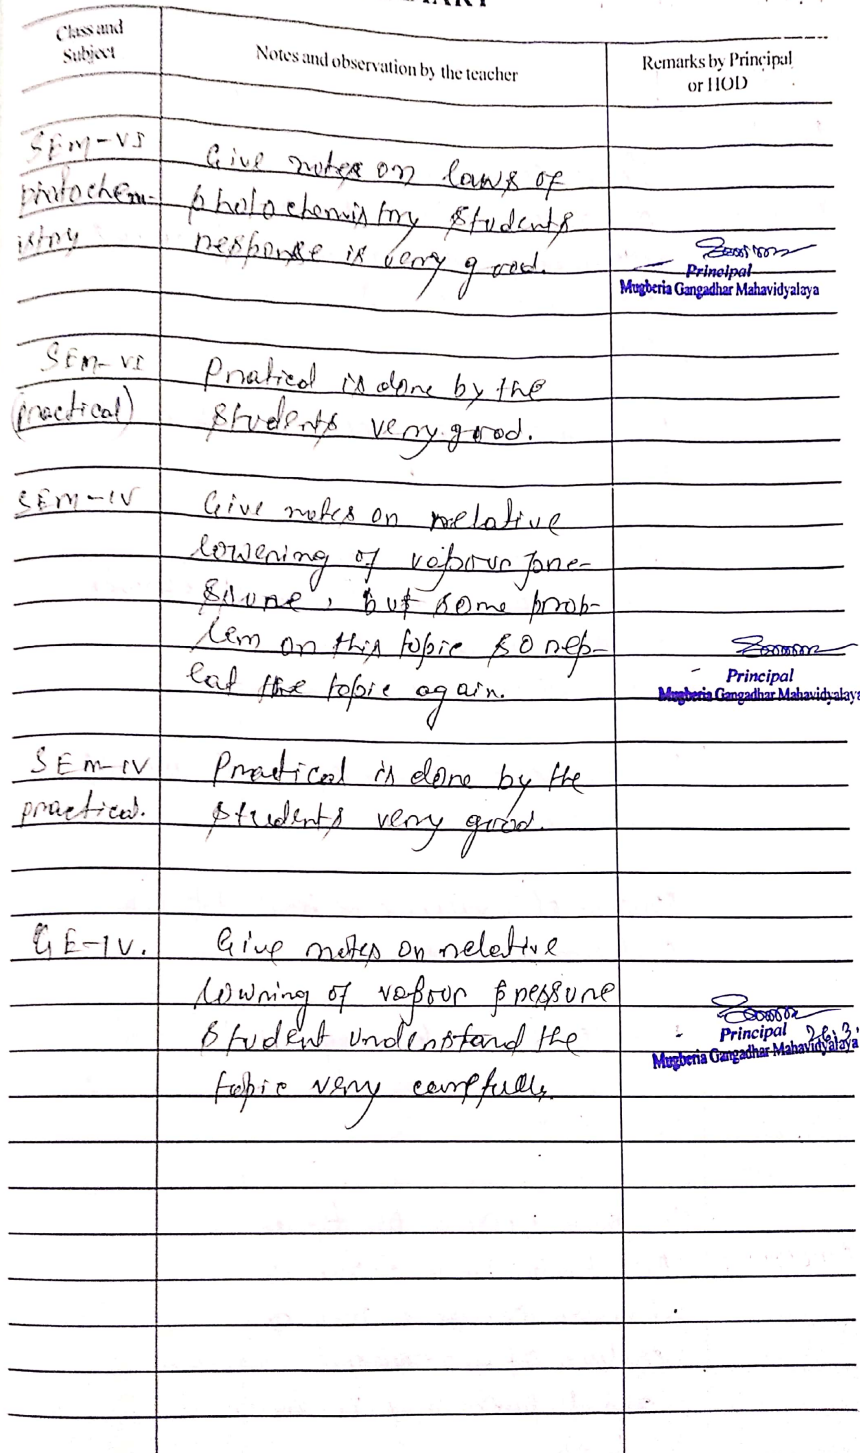 Class and
Subject
Notes and observation by the teacher
Remarks by Principal
or HOD
SEM-VI
photochem-
istry
Give notes on laws of
photochemistry students
response is very good.
Principal
Mugberia Gangadhar Mahavidyalaya
SEM-VI
(practical)
Pratical is done by the
students very good.
SEM-IV
Give notes on relative
lowering of vapour pre-
ssure, but some prob-
lem on this topic so rep-
eat the topic again.
Principal
Mugberia Gangadhar Mahavidyalaya
SEM-IV
practical.
Practical is done by the
students very good.
GE-IV.
Give notes on relative
lowring of vapour pressure
student understand the
topic very carefully.
Principal 26.3.
Mugberia Gangadhar Mahavidyalaya